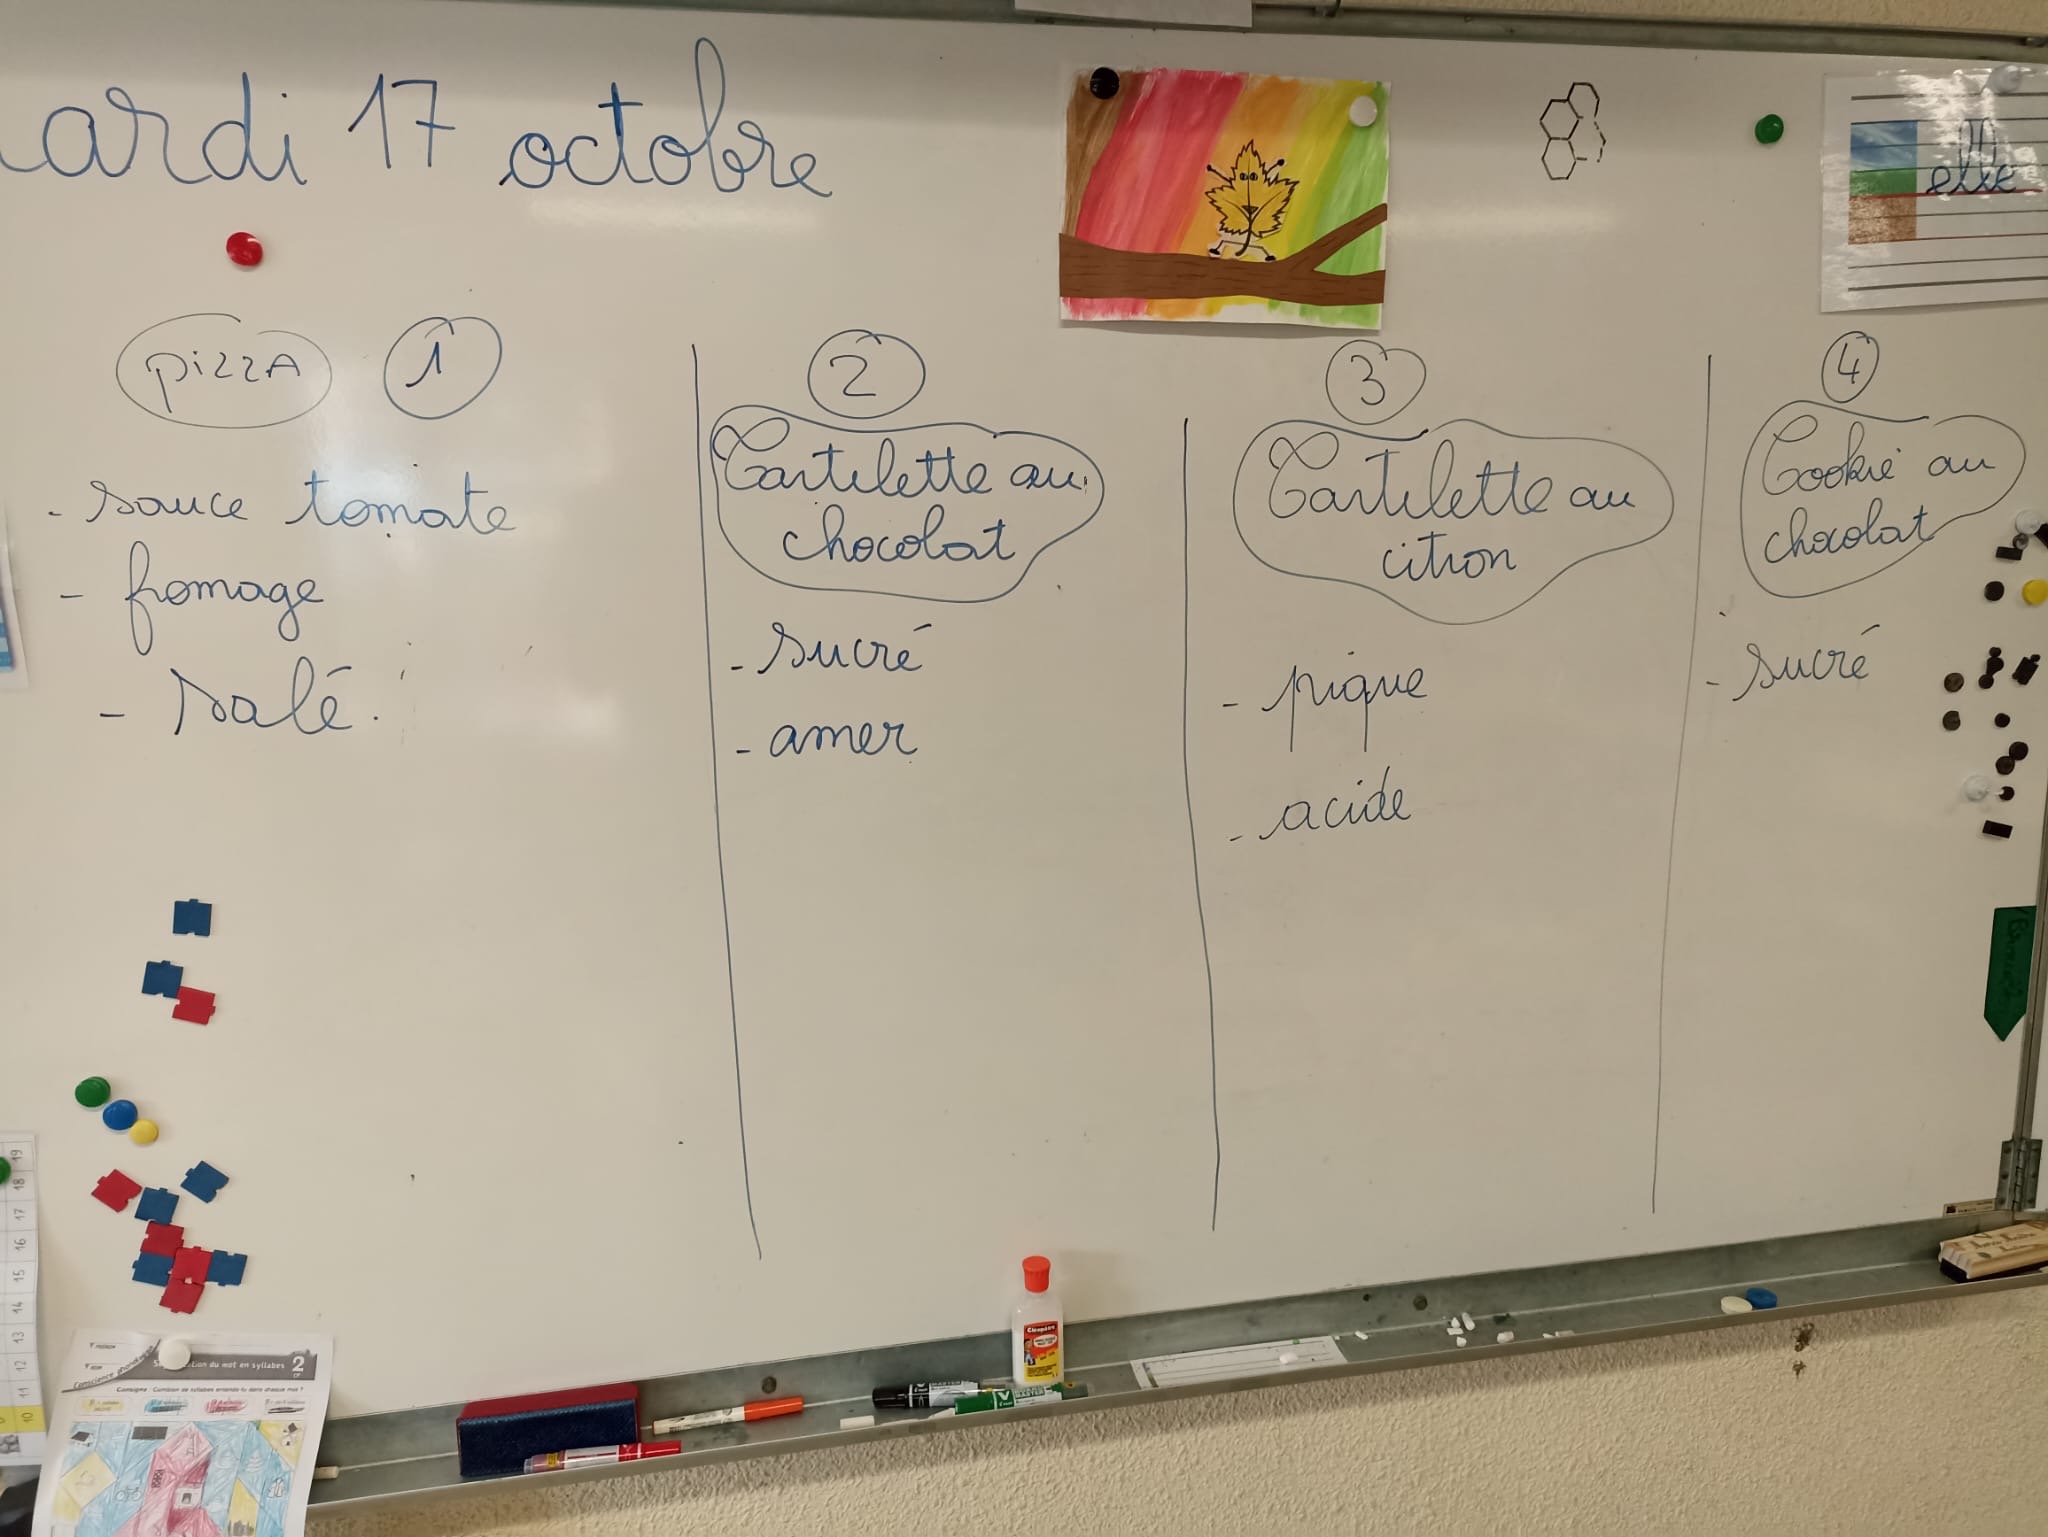 ardi 17 octobre
elle
pizzA 1
- sauce tomate
- fromage
- salé.
2
Tartelette au
chocolat
- sucré
- amer
3
Tartelette au
citron
- pique
- acide
4
Cookie au
chocolat
- sucré
19
18
17
16
15
14
13
12
11
10
Conscience phonologique
du mot en syllabes 2
Consigne : Combien de syllabes entends-tu dans chaque mot ?
Cléopâtre